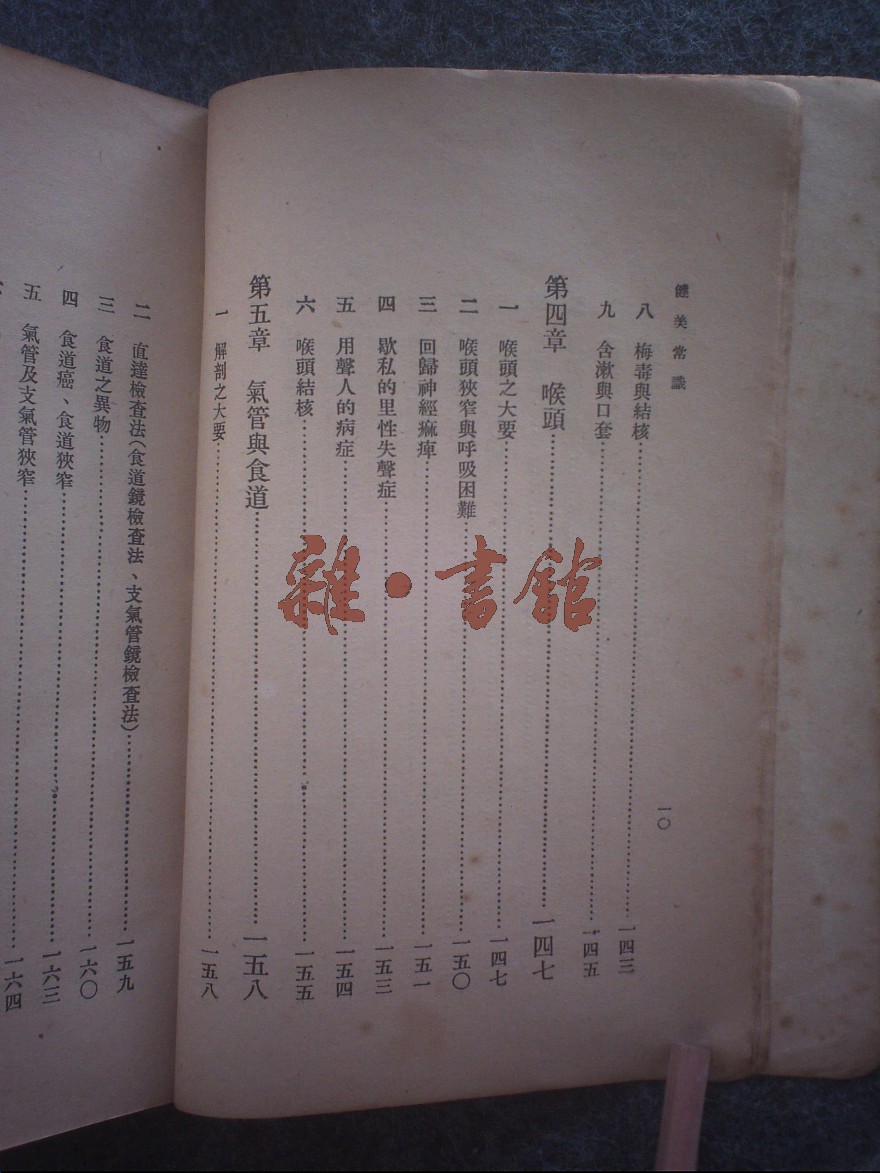 健美常識
一〇
八 梅毒與結核……一四三
九 含漱與口套……一四五
第四章 喉頭……一四七
一 喉頭之大要……一四七
二 喉頭狹窄與呼吸困難……一五〇
三 回歸神經痲痺……一五一
四 歇私的里性失聲症……一五三
五 用聲人的病症……一五四
六 喉頭結核……一五五
第五章 氣管與食道……一五八
一 解剖之大要……一五八
二 直達檢查法(食道鏡檢查法、支氣管鏡檢查法)……一五九
三 食道之異物……一六〇
四 食道癌、食道狹窄……一六三
五 氣管及支氣管狹窄……一六四
雜·書館